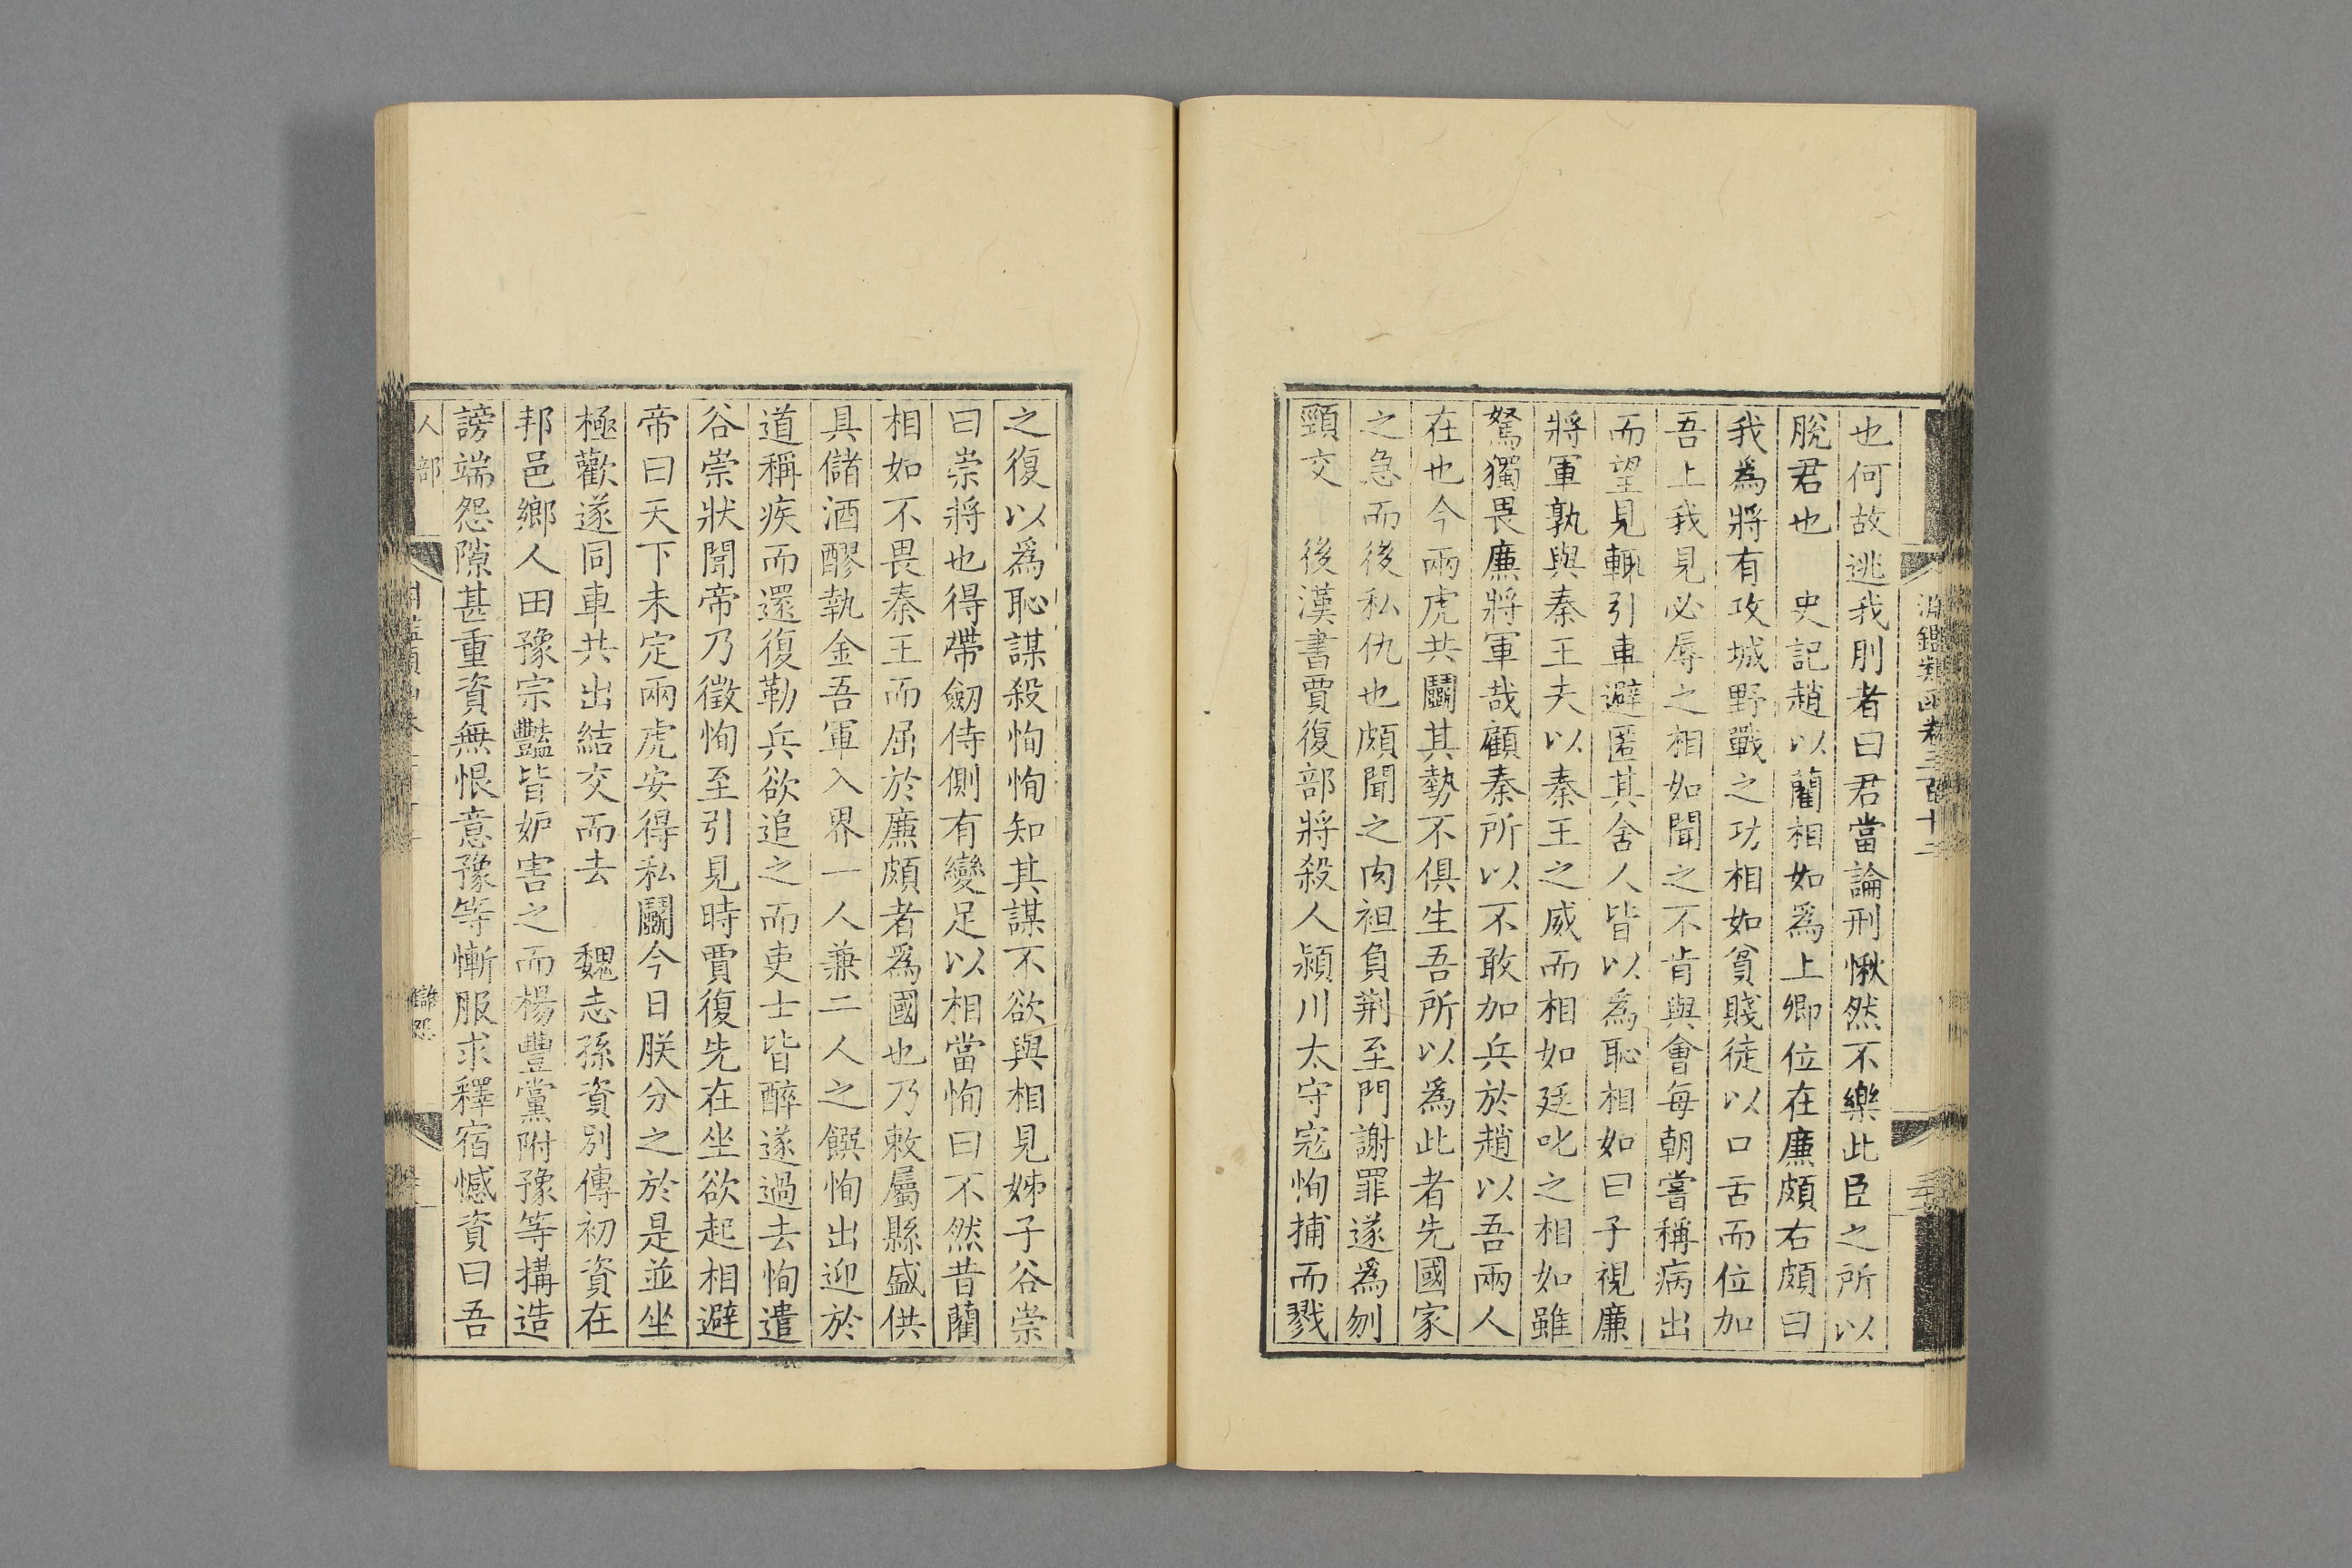 淵鑑類函卷三百十二
也何故逃我刖者曰君當論刑愀然不樂此臣之所以
脫君也　史記趙以藺相如爲上卿位在廉頗右頗曰
我爲將有攻城野戰之功相如貧賤徒以口舌而位加
吾上我見必辱之相如聞之不肯與會每朝嘗稱病出
而望見輒引車避匿其舍人皆以爲恥相如曰子視廉
將軍孰與秦王夫以秦王之威而相如廷叱之相如雖
駑獨畏廉將軍哉顧秦所以不敢加兵於趙以吾兩人
在也今兩虎共鬭其勢不俱生吾所以爲此者先國家
之急而後私仇也頗聞之肉袒負荆至門謝罪遂爲刎
頸交　後漢書賈復部將殺人潁川太守寇恂捕而戮
之復以爲恥謀殺恂恂知其謀不欲與相見姊子谷崇
曰崇將也得帶劒侍側有變足以相當恂曰不然昔藺
相如不畏秦王而屈於廉頗者爲國也乃敕屬縣盛供
具儲酒醪執金吾軍入界一人兼二人之饌恂出迎於
道稱疾而還復勒兵欲追之而吏士皆醉遂過去恂遣
谷崇狀聞帝乃徵恂至引見時賈復先在坐欲起相避
帝曰天下未定兩虎安得私鬭今日朕分之於是並坐
極歡遂同車共出結交而去　魏志孫資別傳初資在
邦邑鄉人田豫宗豔皆妒害之而楊豐黨附豫等搆造
謗端怨隙甚重資無恨意豫等慚服求釋宿憾資曰吾
人部